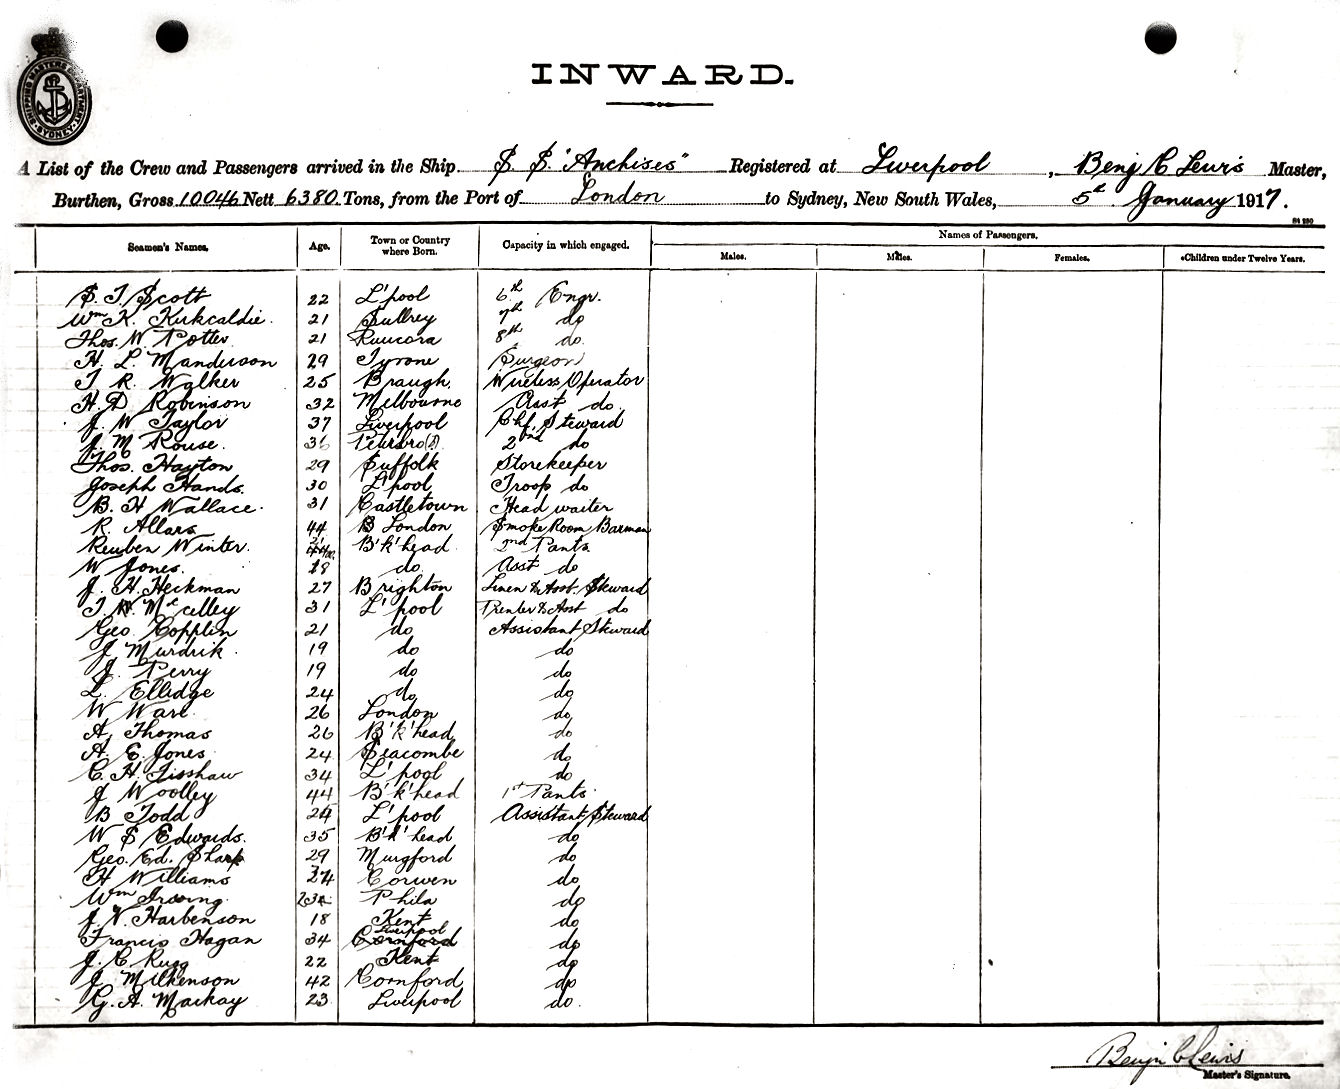 SHIPPING MASTERS DEPARTMENT SYDNEY
INWARD.
A List of the Crew and Passengers arrived in the Ship S. S. "Anchises" Registered at Liverpool, Benj C Lewis Master,
Burthen, Gross 10046 Nett 6380 Tons, from the Port of London to Sydney, New South Wales, 5th January 1917.
Names of Passengers.
Seamen's Names. Age. Town or Country where Born. Capacity in which engaged. Males. Males. Females. Children under Twelve Years.
S. T. Scott 22 L'pool 6th Engr.
Wm K. Kirkcaldie. 21 Surrey 7th do
Thos. W. Potter 21 8th do.
H. L. Manderson 29 Tyrone Surgeon
T R. Walker 25 Braugh. Wireless Operator
H. D. Robinson 32 Melbourne Asst do
J. W Taylor 37 Liverpool Chf. Steward
J. M Rouse. 36 Petersbro(?) 2nd do
Thos. Hayton 29 Suffolk Storekeeper
Joseph Hands. 30 L'pool Troop do
B. H Wallace. 31 Castletown Head waiter
R. Allars 44 B London Smoke Room Barman
Reuben Winter. B'k'head 2nd Pants
W Jones. 18 do. Asst do
J. H. Heckman 27 Brighton Linen & Asst. Steward
31 L'pool Printer & Asst do
Geo. Copplin 21 do Assistant Steward
J Murdrik. 19 do do
J. Perry 19 do do
L. Ellidge 24 do do
W Ware 26 London do
A. Thomas 26 B'k'head do
A. E. Jones 24 Seacombe do
C. H. Tisshaw 34 L'pool do
J Woolley 44 B'k'head 1st Pants
B Todd 24 L'pool Assistant Steward
W S Edwards. 35 B'k'head do
Geo. Ed. Sharp 29 Murgford do
H Williams Corwen do
Wm Irving. Phila do
J. N. Harbenson 18 Kent do
Francis Hagan 34 Liverpool do
J. C Rugg 22 Kent do
J. Milkenson 42 Cornford do
G. A. Mackay 23 Liverpool do.
Benjn C Lewis
Master's Signature.